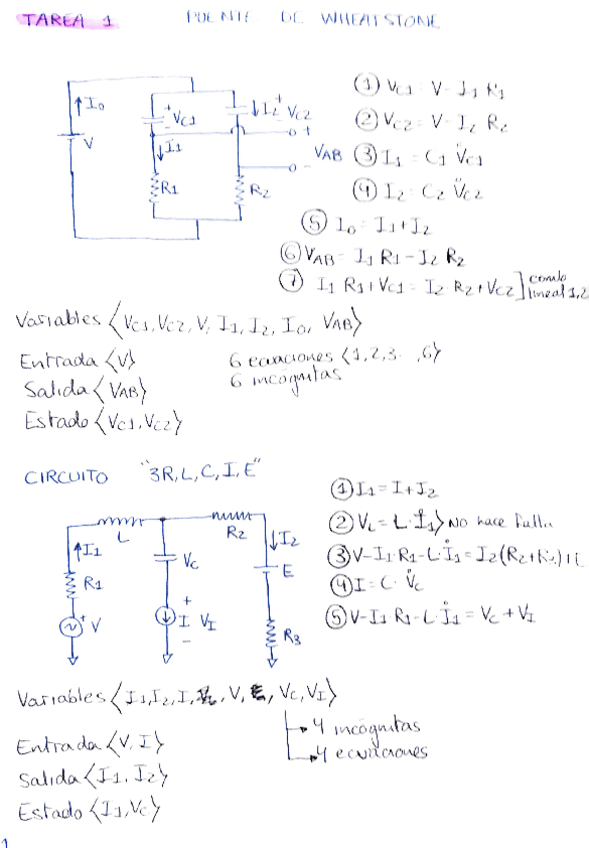 TAREA 1
PUENTE DE WHEATSTONE
I0
V
VC1
I1
R1
I2
VC2
R2
VAB
① VC1 = V - I1 R1
② VC2 = V - I2 R2
③ I1 = C1 V̇C1
④ I2 = C2 V̇C2
⑤ I0 = I1 + I2
⑥ VAB = I1 R1 - I2 R2
⑦ I1 R1 + VC1 = I2 R2 + VC2] comb lineal 1,2
Variables {VC1, VC2, V, I1, I2, I0, VAB}
Entrada {V}
6 ecuaciones {1,2,3...,6}
Salida {VAB}
6 incógnitas
Estado {VC1, VC2}
CIRCUITO "3R, L, C, I, E"
L
R2
I1
R1
V
VC
I
VI
I2
E
R3
① I1 = I + I2
② VL = L · İ1} No hace falta
③ V - I1·R1 - L·İ1 = I2(R2+R3) +
④ I = C · V̇C
⑤ V - I1 R1 - L·İ1 = VC + VI
Variables {I1, I2, I, V, VC, VI}
4 incógnitas
4 ecuaciones
Entrada {V, I}
Salida {I1, I2}
Estado {I1, VC}
1